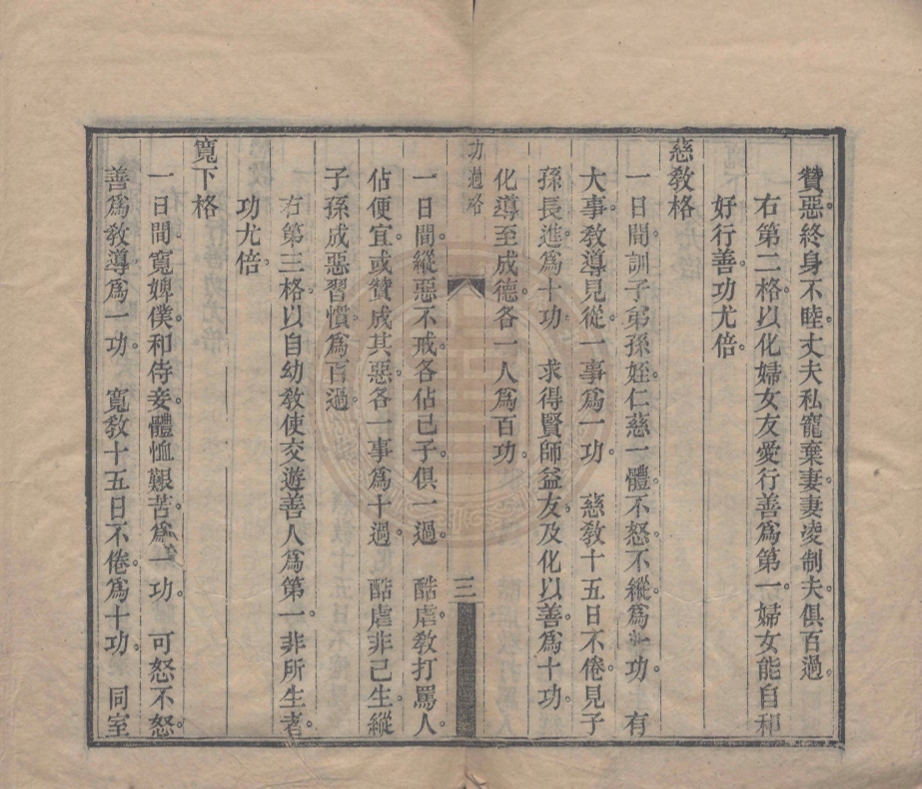 贊惡終身不睦丈夫私寵棄妻妻凌制夫俱百過。
右第二格以化婦女友愛行善爲第一婦女能自和
好行善功尤倍。
慈教格
一日間訓子弟孫姪仁慈一體不怒不縱爲一功。 有
大事教導見從一事爲一功 慈教十五日不倦見子
孫長進爲十功 求得賢師益友及化以善爲十功
化導至成德各一人爲百功
功過格
三
一日間縱惡不戒各佔己子俱一過 酷虐教打罵人。
佔便宜或贊成其惡各一事爲十過 酷虐非己生縱
子孫成惡習慣爲百過
右第三格以自幼教使交遊善人爲第一非所生者。
功尤倍。
寬下格
一日間寬婢僕和侍妾體恤艱苦爲一功 可怒不怒。
善爲教導爲一功 寬教十五日不倦爲十功 同室